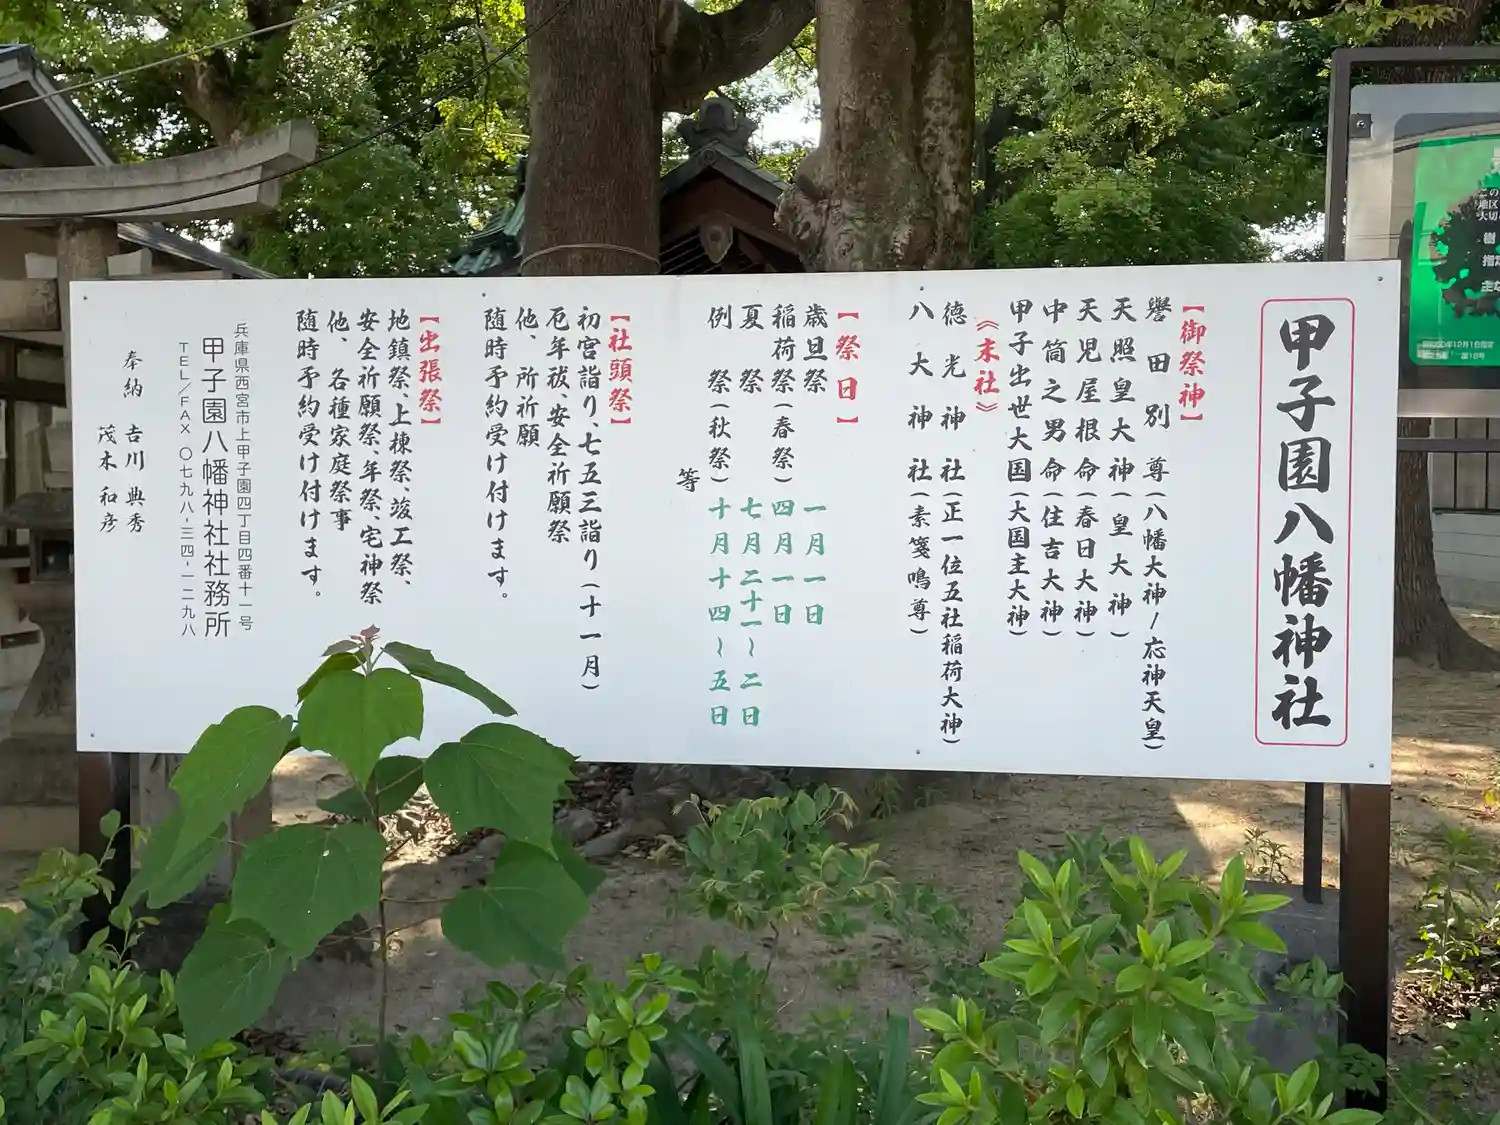 甲子園八幡神社
【御祭神】
譽田別尊(八幡大神/応神天皇)
天照皇大神(皇大神)
天児屋根命(春日大神)
中筒之男命(住吉大神)
甲子出世大国(大国主大神)
《末社》
徳光神社(正一位五社稲荷大神)
八大神社(素箋鳴尊)
【祭日】
歳旦祭 一月一日
稲荷祭(春祭)四月一日
夏祭 七月二十一~二日
例祭(秋祭)十月十四~五日
等
【社頭祭】
初宮詣り、七五三詣り(十一月)
厄年祓、安全祈願祭
他、所祈願
随時予約受け付けます。
【出張祭】
地鎮祭、上棟祭、竣工祭、
安全祈願祭、年祭、宅神祭
他、各種家庭祭事
随時予約受け付けます。
兵庫県西宮市上甲子園四丁目四番十一号
甲子園八幡神社社務所
TEL/FAX 〇七九八-三四-一二九八
奉納 吉川典秀
茂木和彦
この
地区
大切
樹
指定